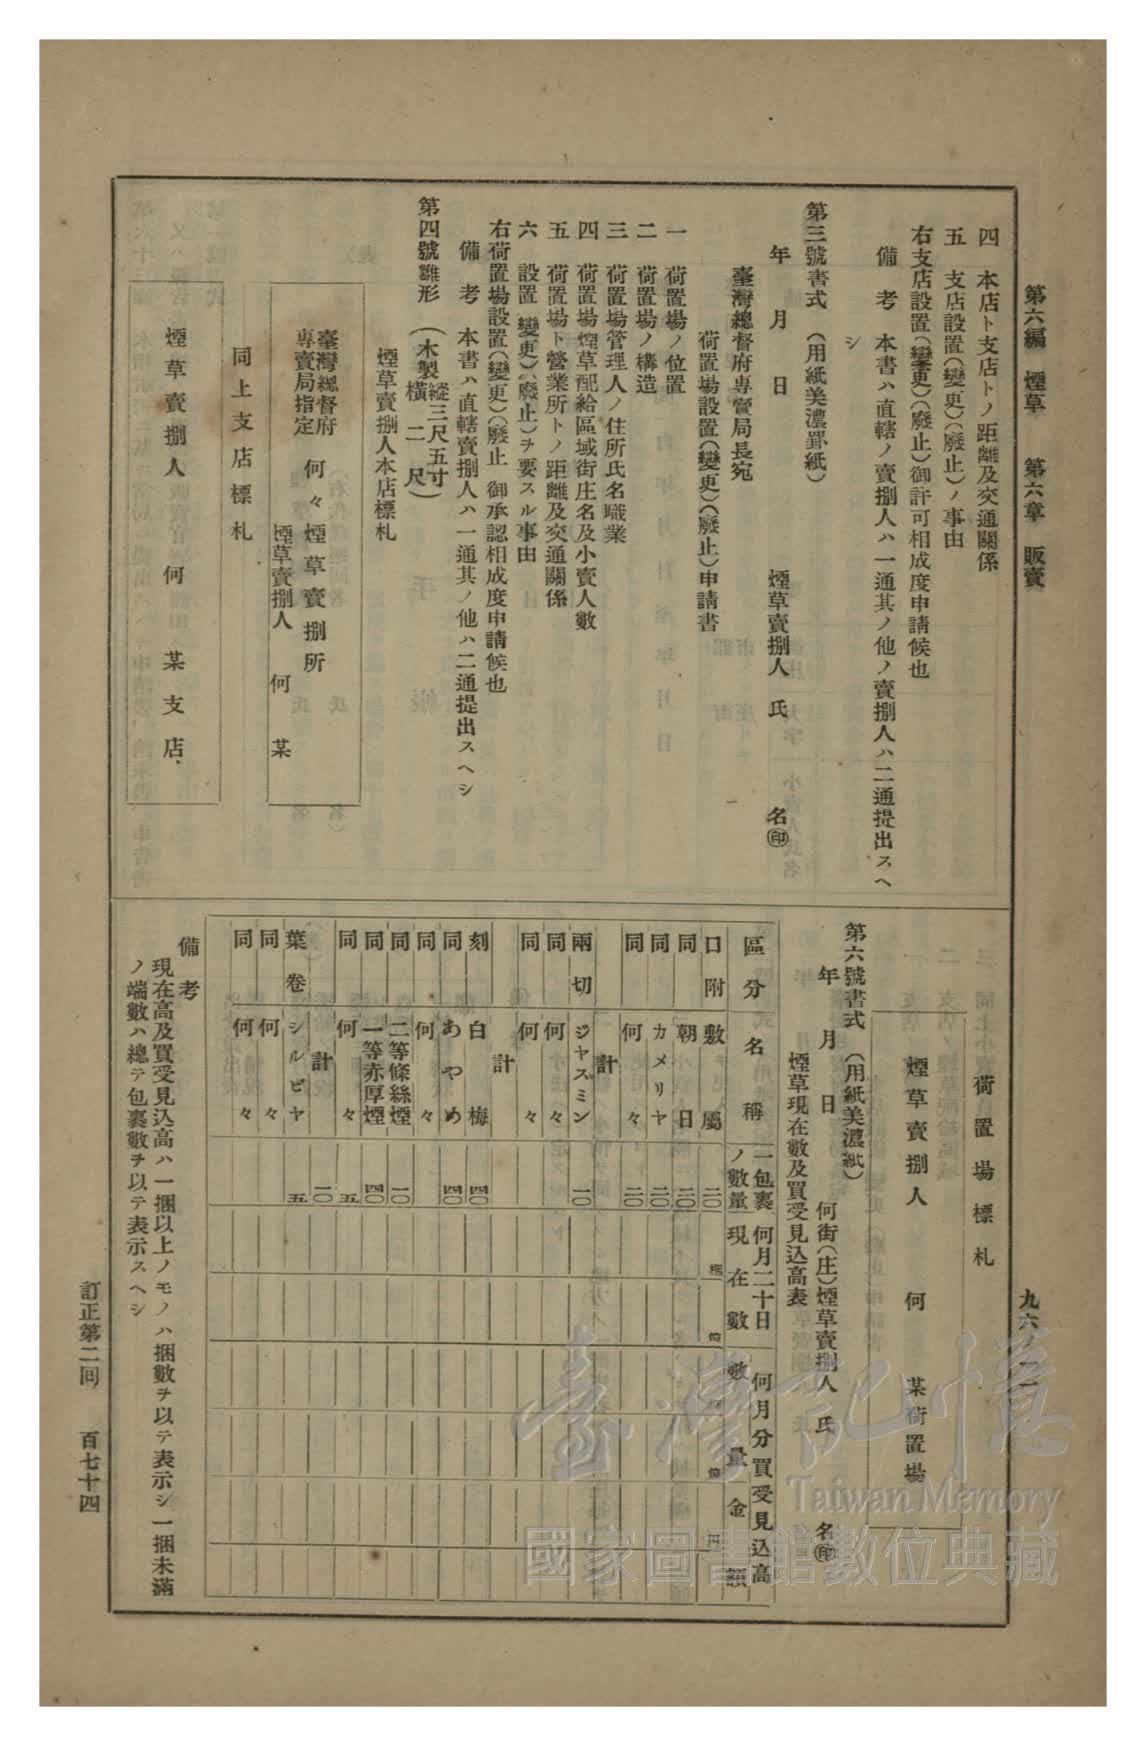 第六編　煙草　　第六章　販賣
九六ノ一二
四　本店ト支店トノ距離及交通關係
五　支店設置(變更)(廢止)ノ事由
右支店設置(變更)(廢止)御許可相成度申請候也
備　考　本書ハ直轄ノ賣捌人ハ一通其ノ他ノ賣捌人ハ二通提出スヘ
シ
第三號書式　(用紙美濃罫紙)
年　　月　　日
煙草賣捌人　氏　　　名㊞
臺灣總督府專賣局長宛
荷置場設置(變更)(廢止)申請書
一　荷置場ノ位置
二　荷置場ノ構造
三　荷置場管理人ノ住所氏名職業
四　荷置場煙草配給區域街庄名及小賣人數
五　荷置場ト營業所トノ距離及交通關係
六　設置(變更)(廢止)ヲ要スル事由
右荷置場設置(變更)(廢止　御承認相成度申請候也
備　考　本書ハ直轄賣捌人ハ一通其ノ他ハ二通提出スヘシ
第四號雛形　(木製縱三尺五寸橫二尺)
煙草賣捌人本店標札
臺灣總督府
專賣局指定
何々煙草賣捌所
煙草賣捌人　何　　某
同上支店標札
煙草賣捌人　　何　　某支店
荷置場標札
煙草賣捌人　　何　　某荷置場
第六號書式　(用紙美濃紙)
年　　月　　日
何街(庄)煙草賣捌人　氏　　　名㊞
煙草現在數及買受見込高表
區分　名稱　一包裹ノ數量　何月二十日現在數　何月分買受見込高　數量　金額
口附　敷屬　二〇　梱　個　個　円
同　朝日　二〇
同　カメリヤ　二〇
同　何々　二〇
計
兩切　ジャスミン　一〇
同　何々
同　何々
計
刻　白梅　四〇
同　あやめ　四〇
同　何々
同　二等條絲煙　一〇
同　一等赤厚煙　四〇
同　何々　五
計　一〇
葉卷　シルビヤ　五
同　何々
同　何々
備考
現在高及買受見込高ハ一梱以上ノモノハ梱數ヲ以テ表示シ一梱未滿
ノ端數ハ總テ包裹數ヲ以テ表示スヘシ
訂正第二回　　百七十四
臺灣記憶
Taiwan Memory
國家圖書館數位典藏